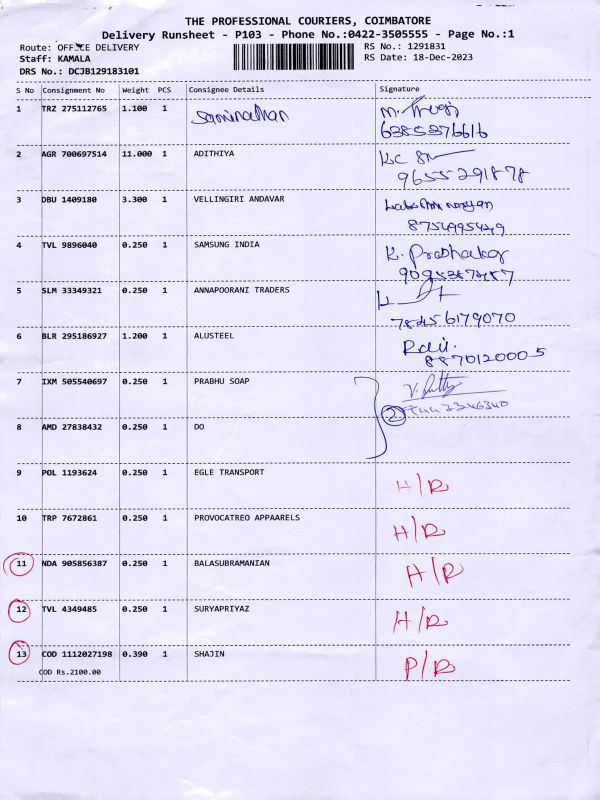 THE PROFESSIONAL COURIERS, COIMBATORE
Delivery Runsheet - P103 - Phone No.:0422-3505555 - Page No.:1
Route: OFFICE DELIVERY RS No.: 1291831
Staff: KAMALA RS Date: 18-Dec-2023
DRS No.: DCJB129183101
S No Consignment No Weight PCS Consignee Details Signature
1 TRZ 275112765 1.100 1 Saminathan
6385376616
2 AGR 700697514 11.000 1 ADITHIYA
9655291878
3 DBU 1409180 3.300 1 VELLINGIRI ANDAVAR
8754995449
4 TVL 9896040 0.250 1 SAMSUNG INDIA K. Prabhakar
5 SLM 33349321 0.250 1 ANNAPOORANI TRADERS
78456179070
6 BLR 295186927 1.200 1 ALUSTEEL
8870120005
7 IXM 505540697 0.250 1 PRABHU SOAP
2
8 AMD 27838432 0.250 1 DO
9 POL 1193624 0.250 1 EGLE TRANSPORT H/R
10 TRP 7672861 0.250 1 PROVOCATREO APPAARELS H/R
11 NDA 905856387 0.250 1 BALASUBRAMANIAN H/R
12 TVL 4349485 0.250 1 SURYAPRIYAZ H/R
13 COD 1112027198 0.390 1 SHAJIN P/R
COD Rs.2100.00